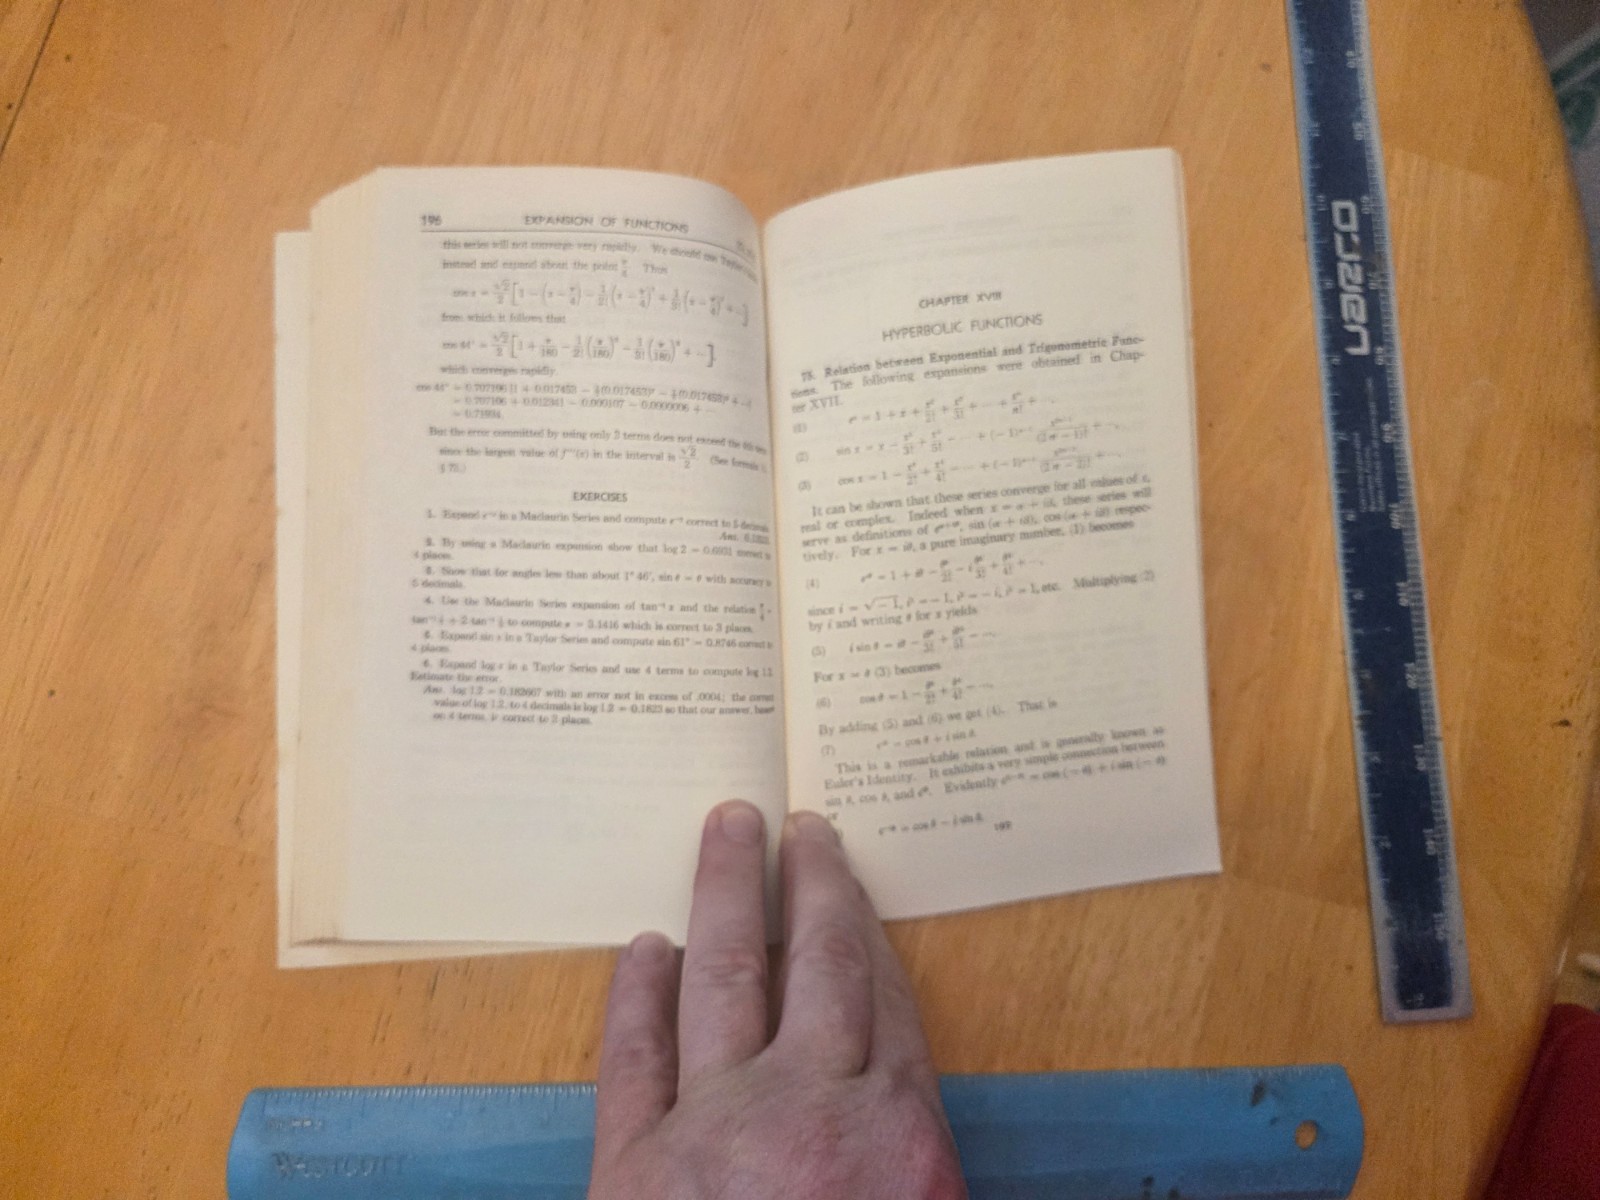 196 EXPANSION OF FUNCTIONS
this series will not converge very rapidly. We should use Taylor's
instead and expand about the point π/4. Thus
cos x = √2/2 [1 − (x − π/4) − 1/2! (x − π/4)² + 1/3! (x − π/4)³ + ···]
from which it follows that
cos 44° = √2/2 [1 + π/180 − 1/2! (π/180)² − 1/3! (π/180)³ + ···],
which converges rapidly.
cos 44° = 0.707106 [1 + 0.017453 − ½(0.017453)² − ⅙(0.017453)³ + ···]
= 0.707106 + 0.012341 − 0.000107 − 0.0000006 + ···
= 0.71934.
But the error committed by using only 3 terms does not exceed the
since the largest value of f'''(x) in the interval is √2/2. (See formula
§ 75.)
EXERCISES
1. Expand in a Maclaurin Series and compute correct to 5 decimals.
Ans.
2. By using a Maclaurin expansion show that log 2 = 0.6931 correct to
4 places.
3. Show that for angles less than about 1° 46', sin θ = θ with accuracy to
5 decimals.
4. Use the Maclaurin Series expansion of tan⁻¹ x and the relation π/4 =
to compute π = 3.1416 which is correct to 3 places.
5. Expand sin x in a Taylor Series and compute sin 61° = 0.8746 correct to
4 places.
6. Expand log x in a Taylor Series and use 4 terms to compute log 1.2.
Estimate the error.
Ans. log 1.2 = 0.182667 with an error not in excess of .0004; the correct
value of log 1.2, to 4 decimals is log 1.2 = 0.1823 so that our answer, based
on 4 terms, is correct to 3 places.
CHAPTER XVIII
HYPERBOLIC FUNCTIONS
78. Relation between Exponential and Trigonometric Func-
tions. The following expansions were obtained in Chap-
ter XVII.
(1) eˣ = 1 + x + x²/2! + x³/3! + ··· + xⁿ/n! + ···,
(2) sin x = x − x³/3! + x⁵/5! − ··· + (−1)ⁿ⁻¹ x²ⁿ⁻¹/(2n − 1)! + ···,
(3) cos x = 1 − x²/2! + x⁴/4! − ··· + (−1)ⁿ⁻¹ x²ⁿ⁻²/(2n − 2)! + ···.
It can be shown that these series converge for all values of x,
real or complex. Indeed when x = α + iβ, these series will
serve as definitions of e^(α+iβ), sin (α + iβ), cos (α + iβ) respec-
tively. For x = iθ, a pure imaginary number, (1) becomes
(4) e^(iθ) = 1 + iθ − θ²/2! − i θ³/3! + θ⁴/4! + ···,
since i = √−1, i² = −1, i³ = −i, i⁴ = 1, etc. Multiplying (2)
by i and writing θ for x yields
(5) i sin θ = iθ − i θ³/3! + i θ⁵/5! − ···.
For x = θ (3) becomes
(6) cos θ = 1 − θ²/2! + θ⁴/4! − ···.
By adding (5) and (6) we get (4). That is
(7) e^(iθ) = cos θ + i sin θ.
This is a remarkable relation and is generally known as
Euler's Identity. It exhibits a very simple connection between
sin θ, cos θ, and e^(iθ). Evidently e^(−iθ) = cos (−θ) + i sin (−θ)
or
e^(−iθ) = cos θ − i sin θ.
197
Varco
WESTCOTT